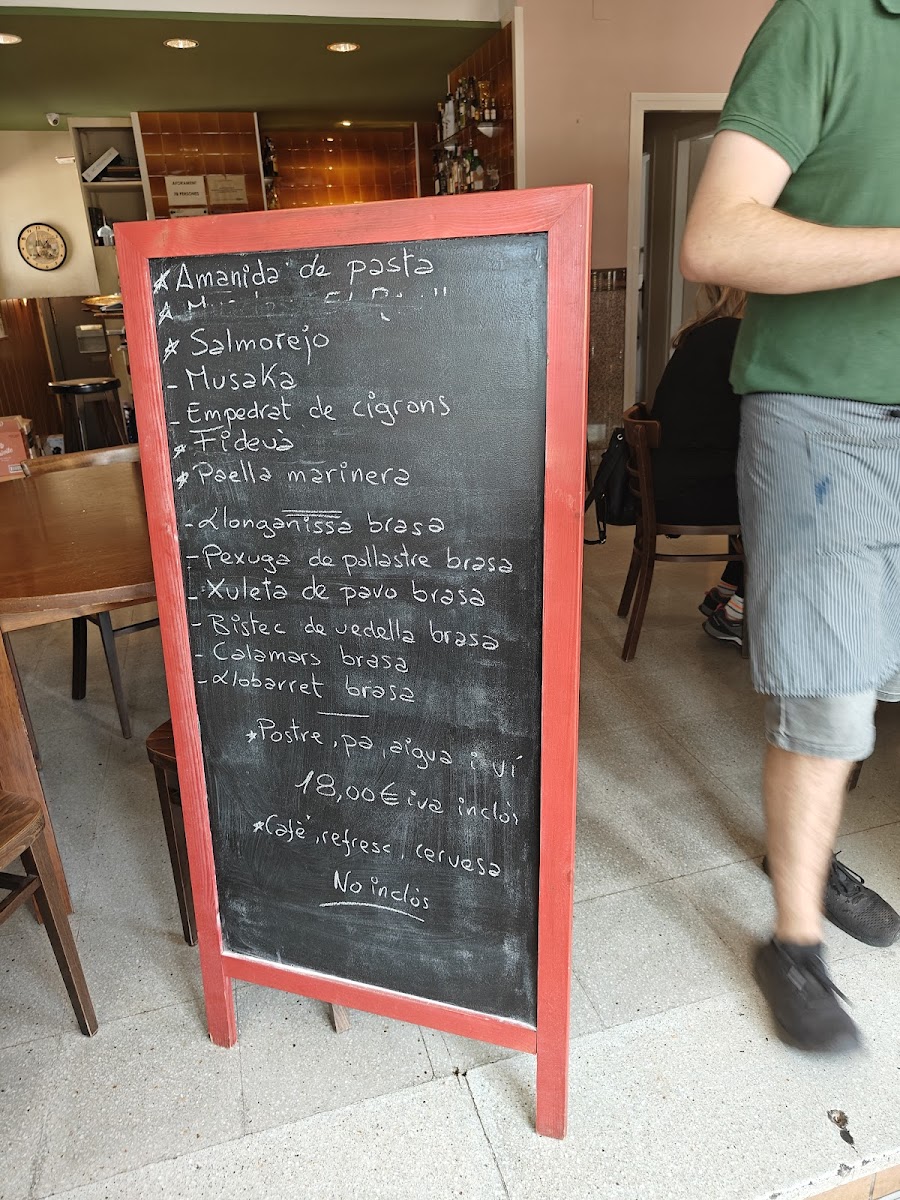 * Amanida de pasta
* Salmorejo
- Musaka
- Empedrat de cigrons
* Fideuà
* Paella marinera
- Llonganissa brasa
- Pexuga de pollastre brasa
- Xuleta de pavo brasa
- Bistec de vedella brasa
- Calamars brasa
- Llobarret brasa
* Postre, pa, aigua i ví
18,00€ iva inclòs
* Cafè, refresc, cervesa
No inclòs